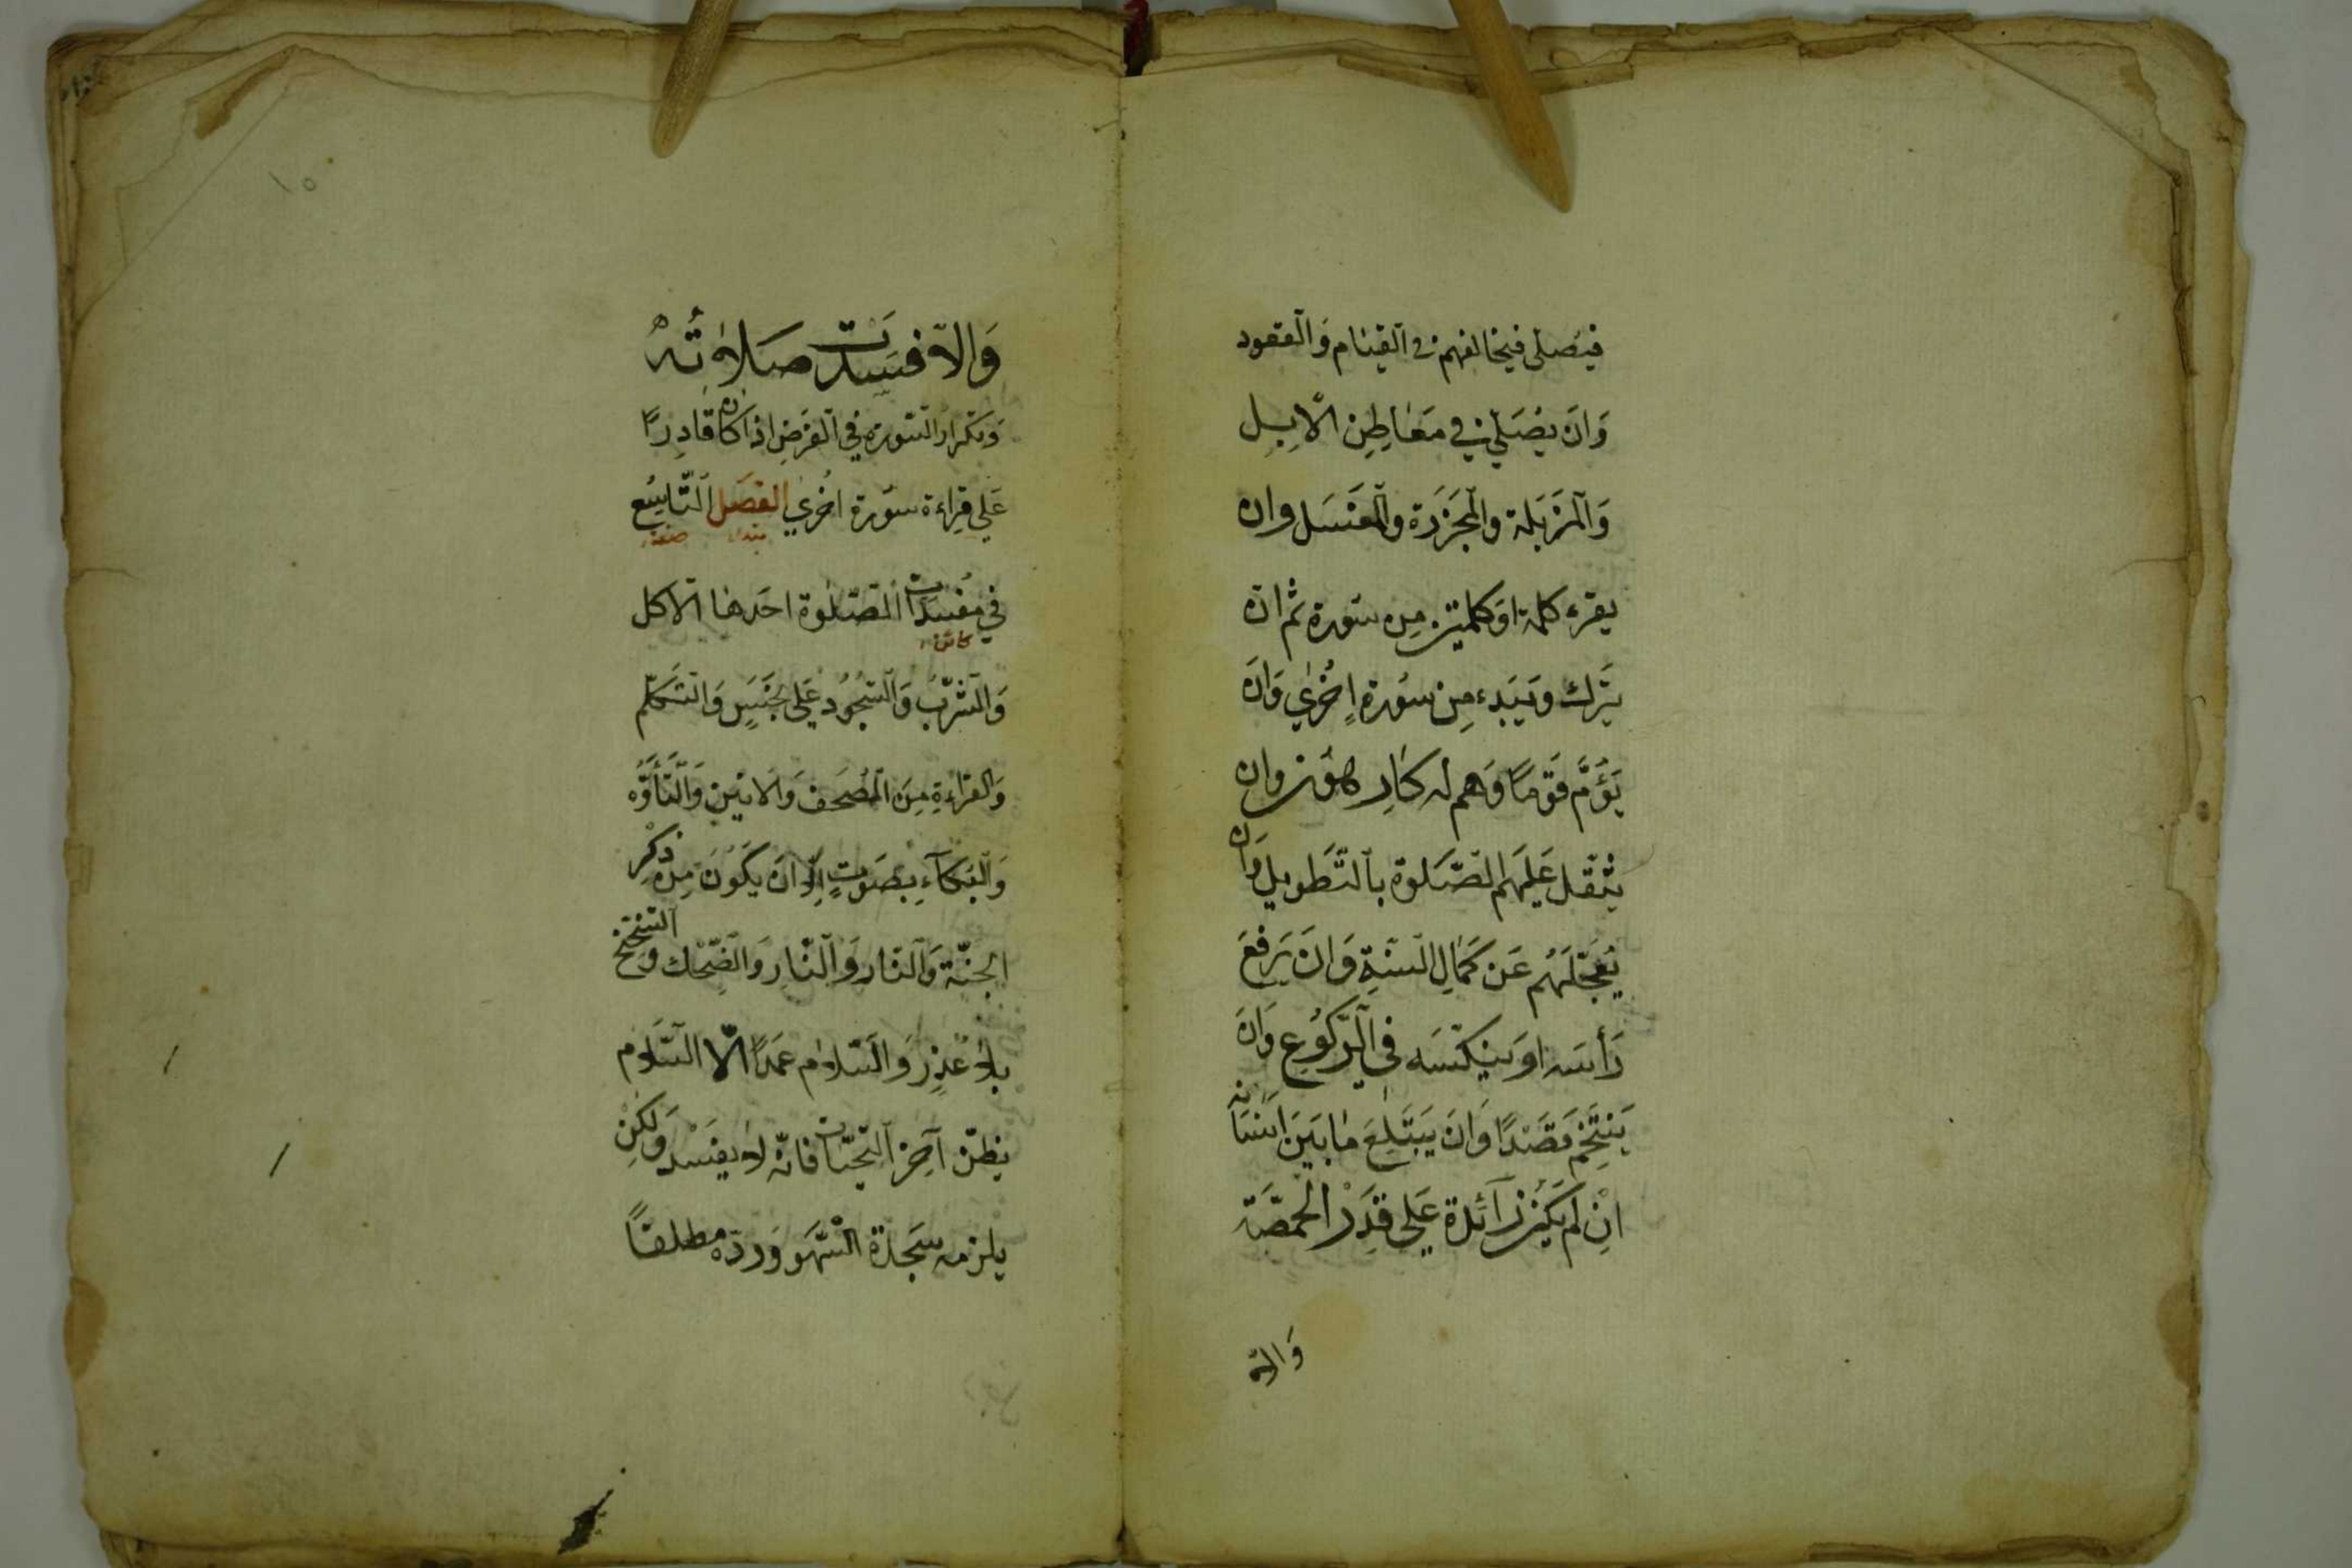 فيصلى فيخالفهم فى القيام والقعود
وَاَن يصَلي في مَعَاطِنِ الابِل
وَالمَزبَلة والمَجزَرَة والمغتسَل وان
يقرء كلمة اَو كلمتين مِن سَورة ثم ان
يَترك ويَبدء مِن سُورة اُخرٰي وَان
يَؤُمَّ قَومًا وَهم له كارِهُون وان
يثقل عَليهم الصّلوة بالتَطويل وَان
يُعَجّلَهُم عَن كَمَالِ السنةِ وَان يَرفعَ
رَأسَه اوَ ينكسَه في الرّكُوعِ وَان
يَتنخّم قَصَدًا وَان يَبتَلِعَ مٰابَينَ اَسنَانه
انِ لم يَكُن زَآئدة عَلى قَدَر الحمصّة
وَالا
وَالاّ فسَدَت صَلاٰتُهُ
وَتكرار السّورة في الفرَضِ اذا كان قَادِرًا
عَلي قِراءة سَورة اُخري الفصَل التّاسِع
مبتداء صفة
في مُفسِدَات الصّلوة احَدهَا الاكل
كائن
وَالشربُ وَالسّجُود عَلي نجَسٍ وَالتكلّم
وَالقراءةِ مِنَ المُصحَف وَالانين وَالتَّأوّه
وَالبكآءِ بصَوتٍ اِلا ان يكُونَ مِن ذكِر
الجنّة وَالنار وَالنّارِ وَالضّحك وَالتنحنح
بلا عُذرٍ وَالسّلاٰم عمَدًا الاّ السَّلام
يظنّ آخِر التحيّات فانه لا يفسَد وَلكِن
يلزمه سجَدة السّهو وَردّه مطلقًا